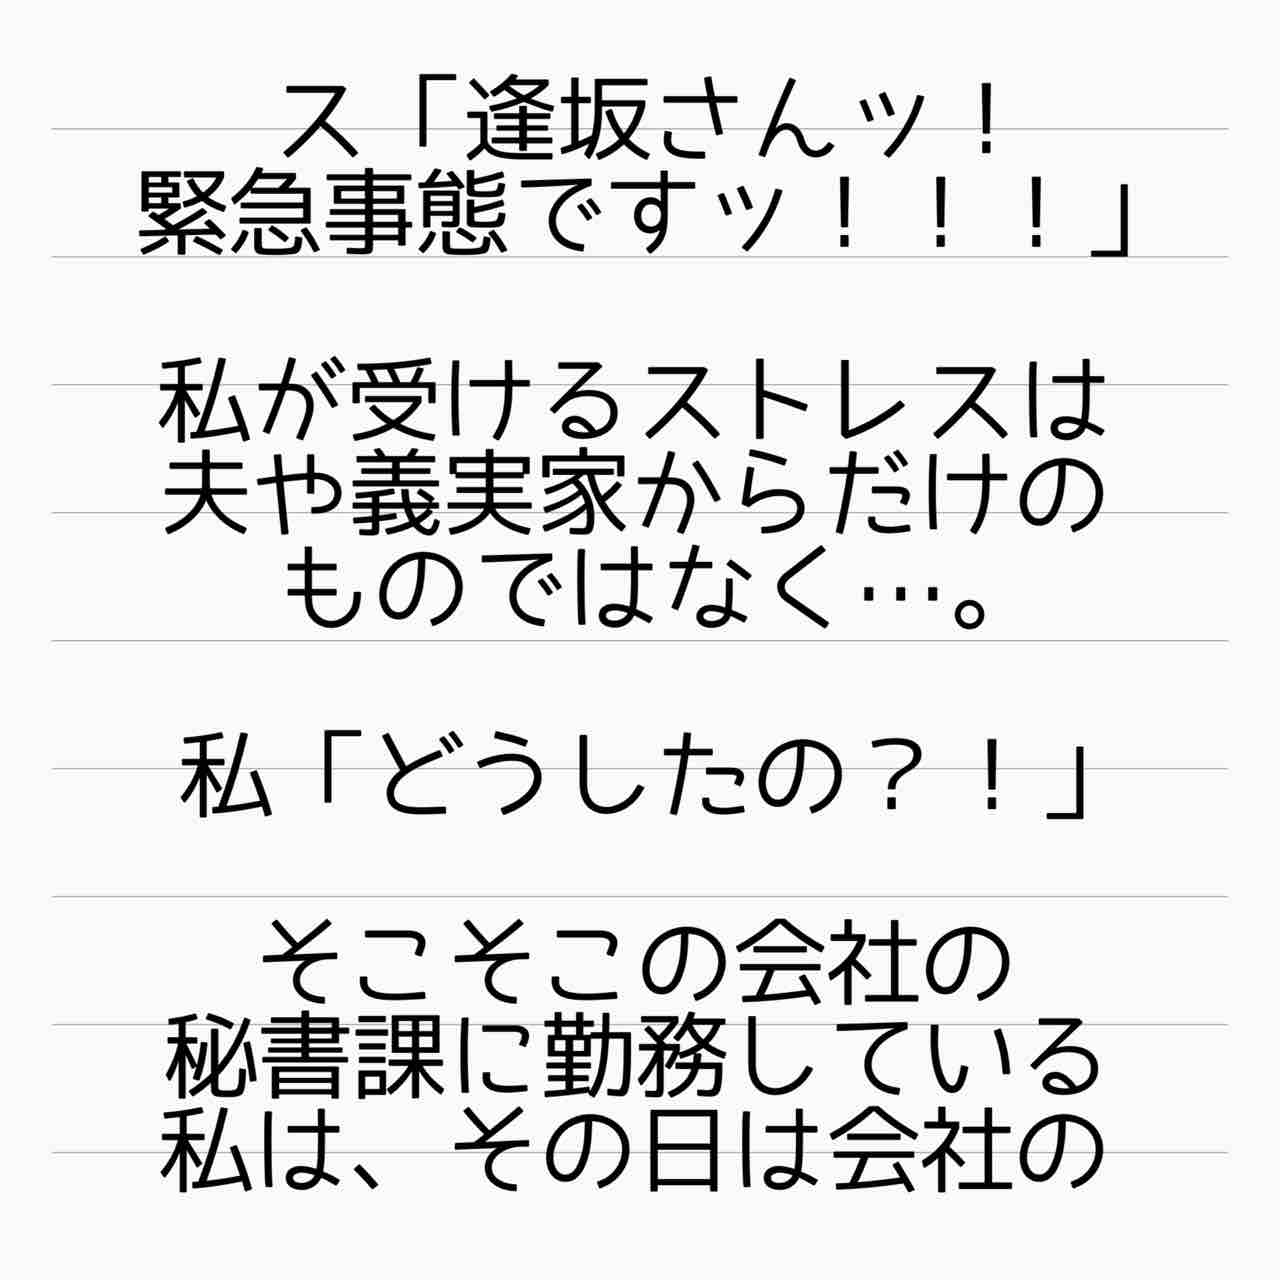 ス「逢坂さんッ！
緊急事態ですッ！！！」
私が受けるストレスは
夫や義実家からだけの
ものではなく…。
私「どうしたの？！」
そこそこの会社の
秘書課に勤務している
私は、その日は会社の